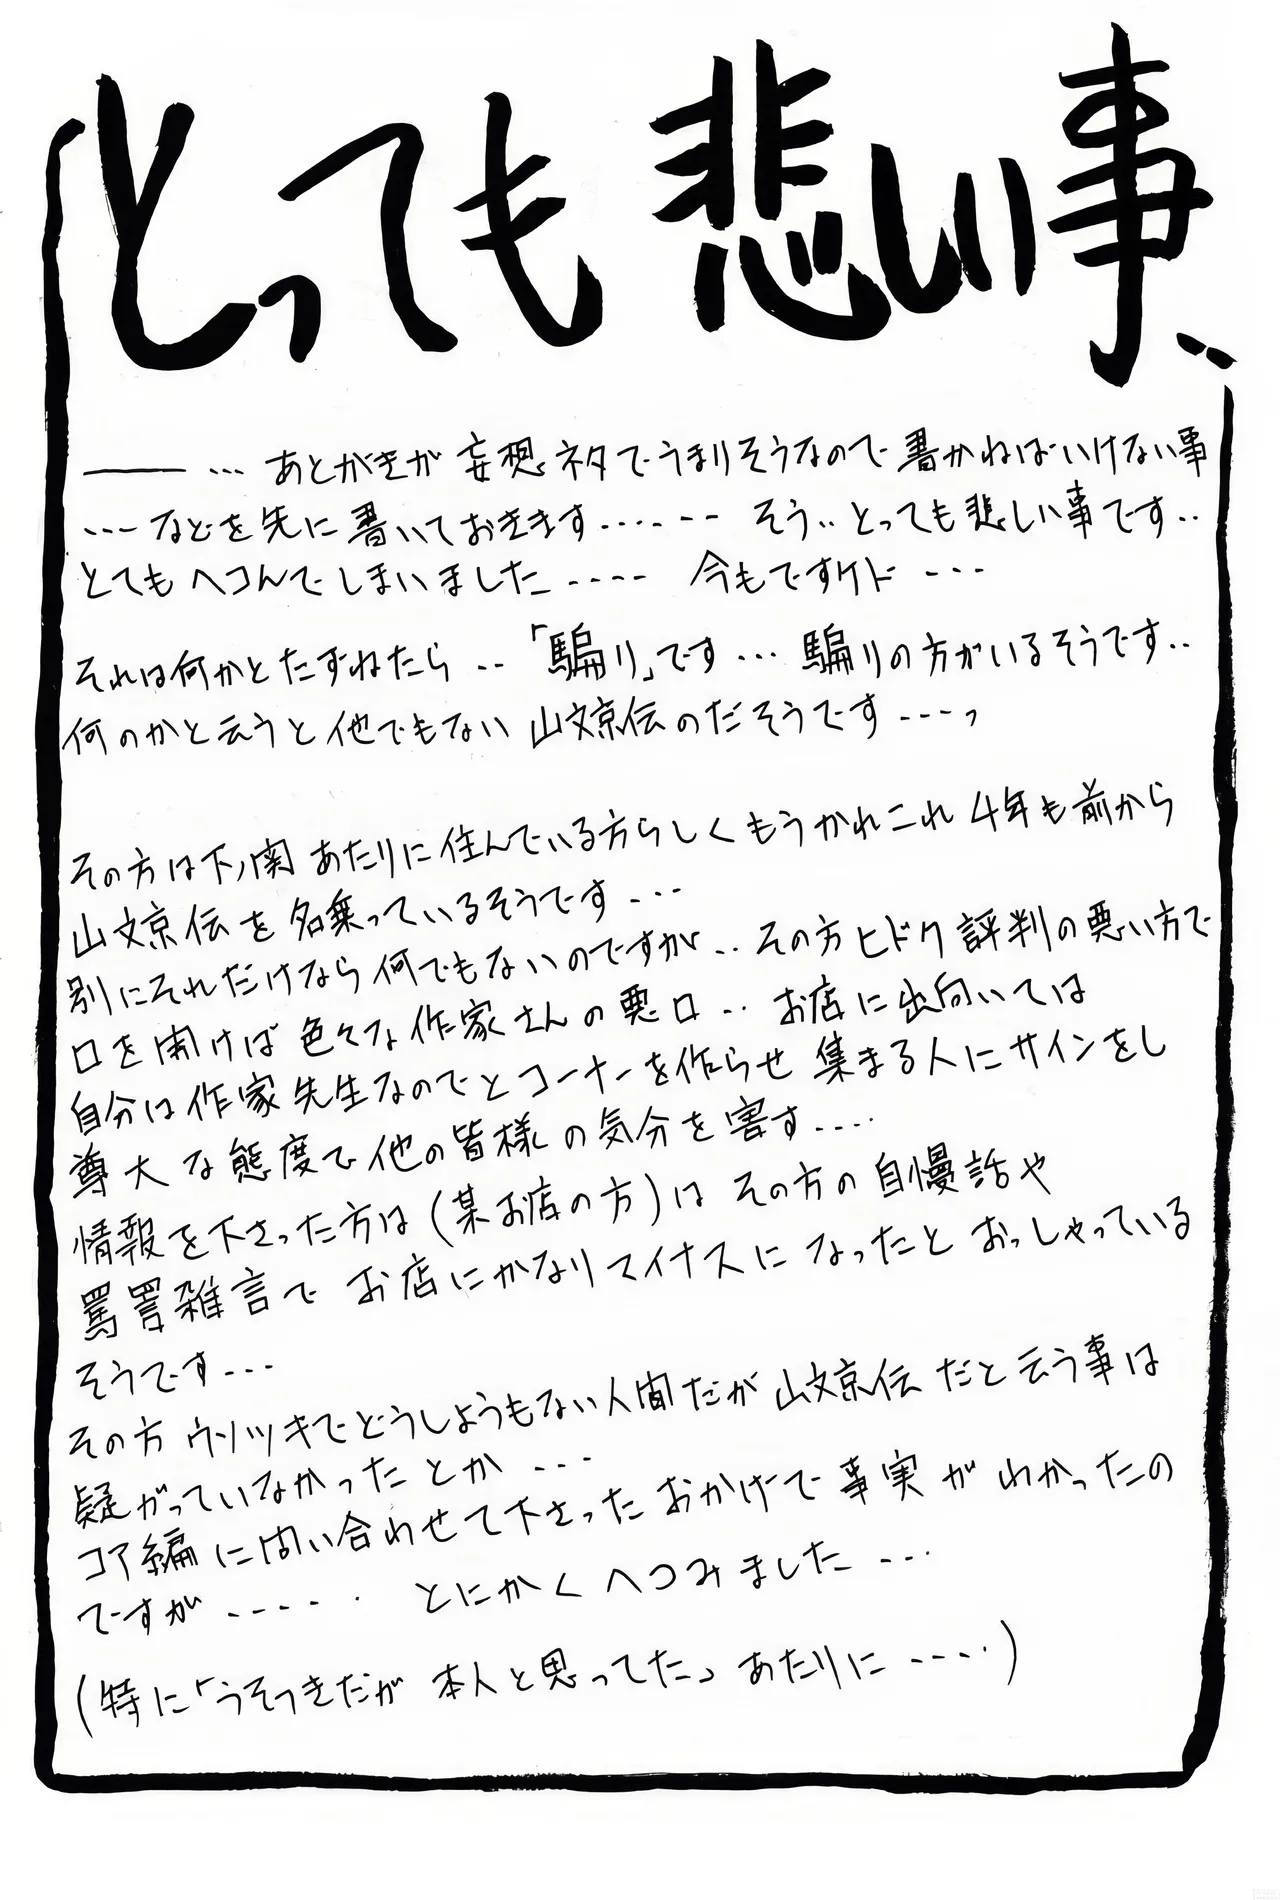 とっても悲しい事‥
――… あとがきが 妄想ネタでうまりそうなので 書かねばいけない事
…などを先に書いておきます…… そう‥とっても悲しい事です‥
とてもヘコんでしまいました…… 今もですケド…
それは何かとたずねたら‥「騙り」です… 騙りの方がいるそうです‥
何のかと云うと他でもない 山文京伝のだそうです…っ
その方は下ノ関 あたりに住んでいる方らしく もうかれこれ 4年も前から
山文京伝を名乗っているそうです…
別にそれだけなら何でもないのですが‥その方ヒドク評判の悪い方で
口を開けば色々な作家さんの悪口‥お店に出向いては
自分は作家先生なのでとコーナーを作らせ 集まる人にサインをし
尊大な態度で他の皆様の気分を害す……
情報を下さった方は(某お店の方)は その方の自慢話や
罵詈雑言で お店にかなりマイナスになったとおっしゃっている
そうです…
その方 ウソツキでどうしようもない人間だが 山文京伝だと云う事は
疑がっていなかったとか…
コア編に問い合わせて下さったおかげで事実がわかったの
ですが…… とにかくへつみました…
(特に「うそつきだが 本人と思ってた」あたりに……)